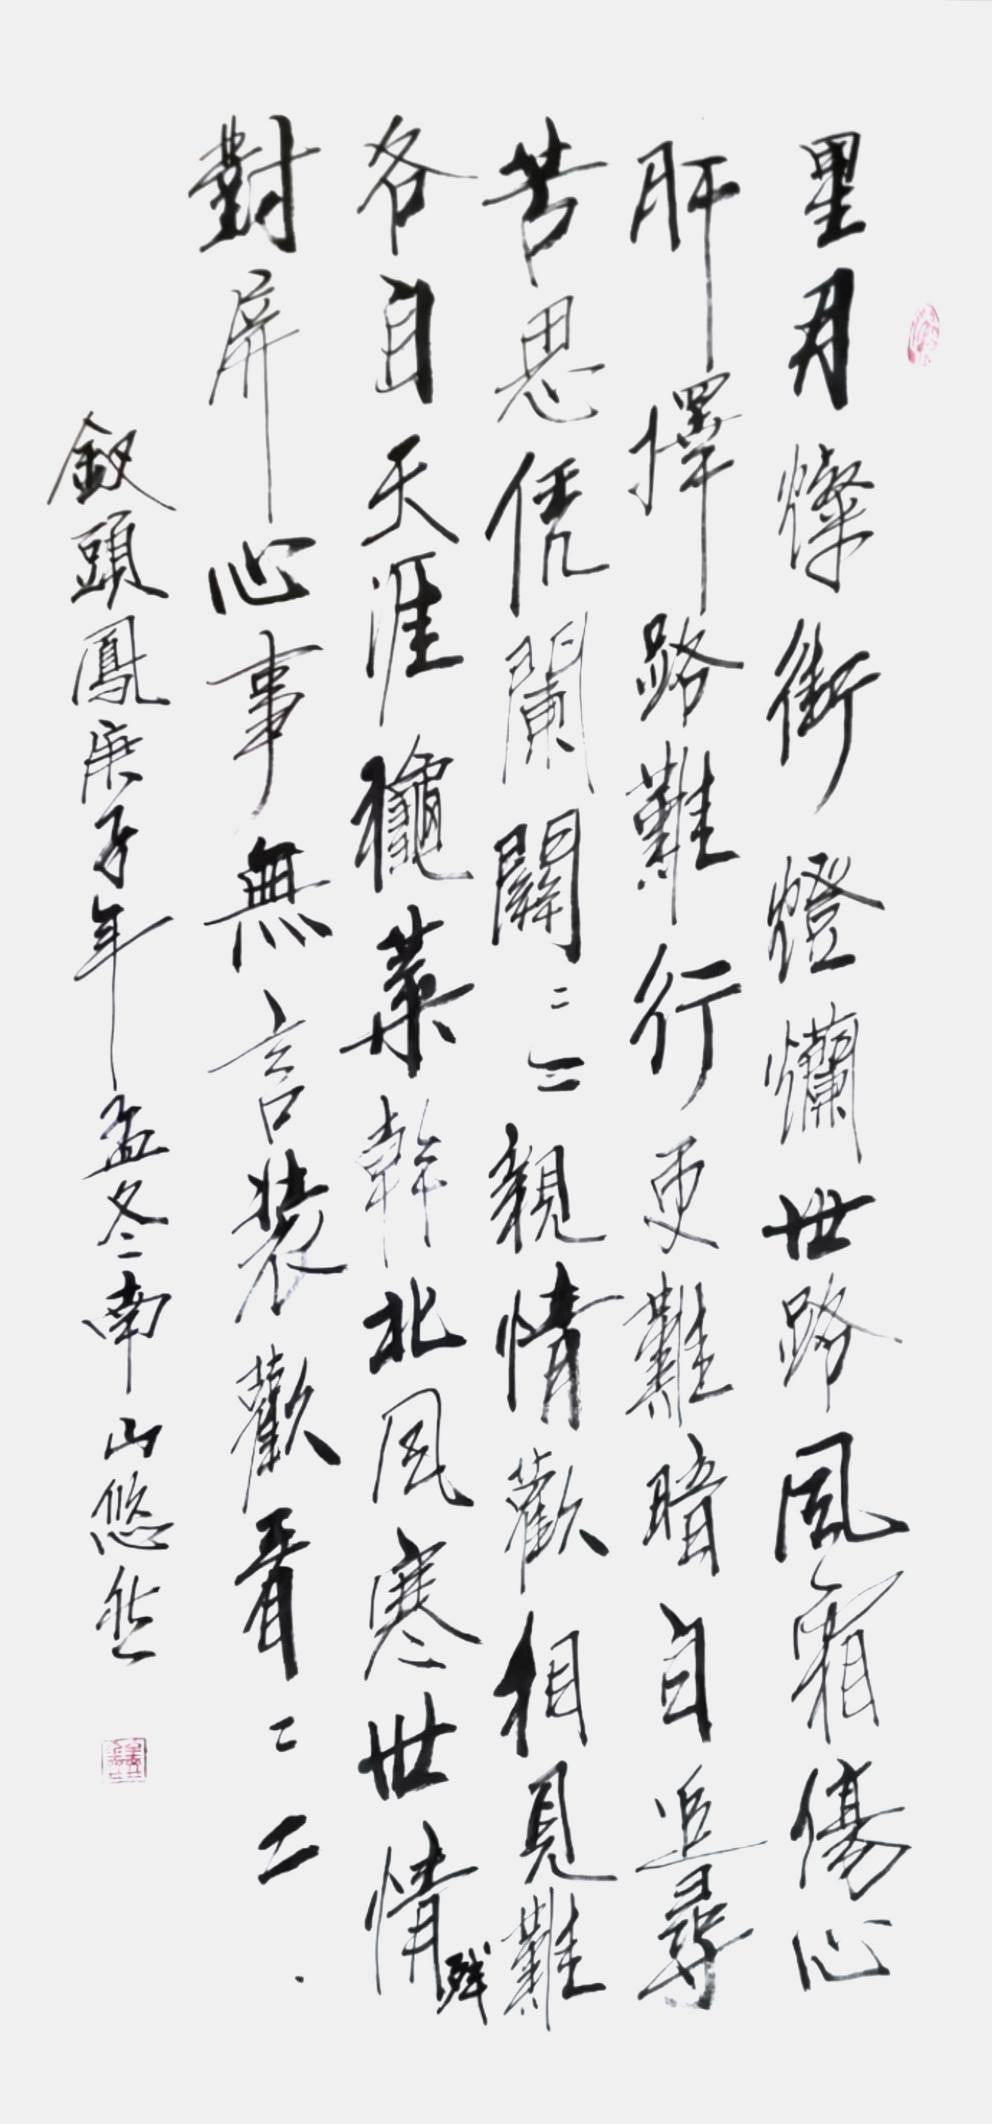 星月燦街燈爛世路風霜傷心
肝擇路難行更難暗自追尋
苦思凭闌關〻〻親情歡相見難
各自天涯龝葉幹北风寒世情残
對屏心事無言裝歡看〻〻
釵頭鳳庚子年孟冬南山悠然